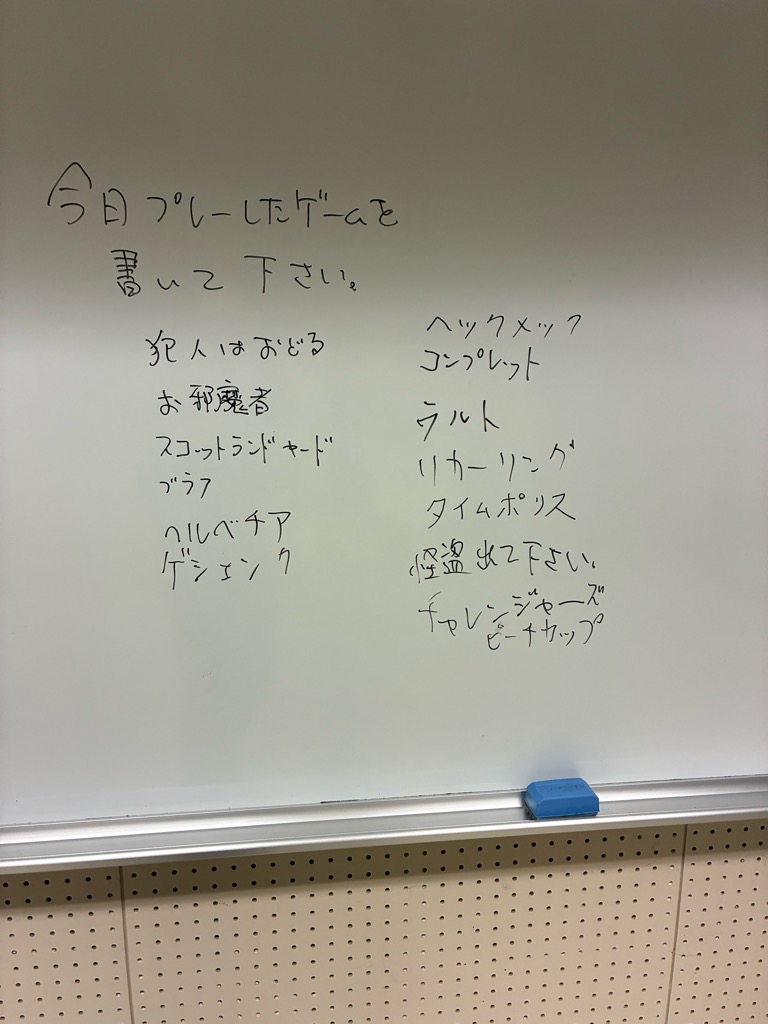 今日プレーしたゲームを
書いて下さい。
犯人はおどる
お邪魔者
スコットランドヤード
ブラフ
ヘルベチア
ゲシェンク
ヘックメック
コンプレット
ウルト
リカーリング
タイムポリス
怪盗出て下さい。
チャレンジャーズ
ピーチカップ